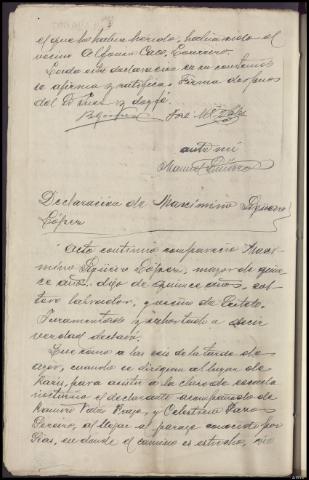 el que ha
vecino Alfonso
Leida esta declaracion en su contenido
se afirma y ratifica. Firma despues
del Sr Juez y doy fé.
José
ante mi
Manuel
Declaracion de Maximino Piñeiro
López
Acto continuo comparecio Maxi-
mino Piñeiro López, mayor de quin-
ce años, digo de quince años, sol-
tero labrador, y vecino de
Juramentado y exhortado a decir
verdad declaró.
Que como a las seis de la tarde de
ayer, cuando se dirigia al lugar de
para asistir a la clase de escuela
nocturna el declarante acompañado de
Ramiro y Celestino
Pereiro, al llegar al paraje conocido por
en donde el camino es estrecho,